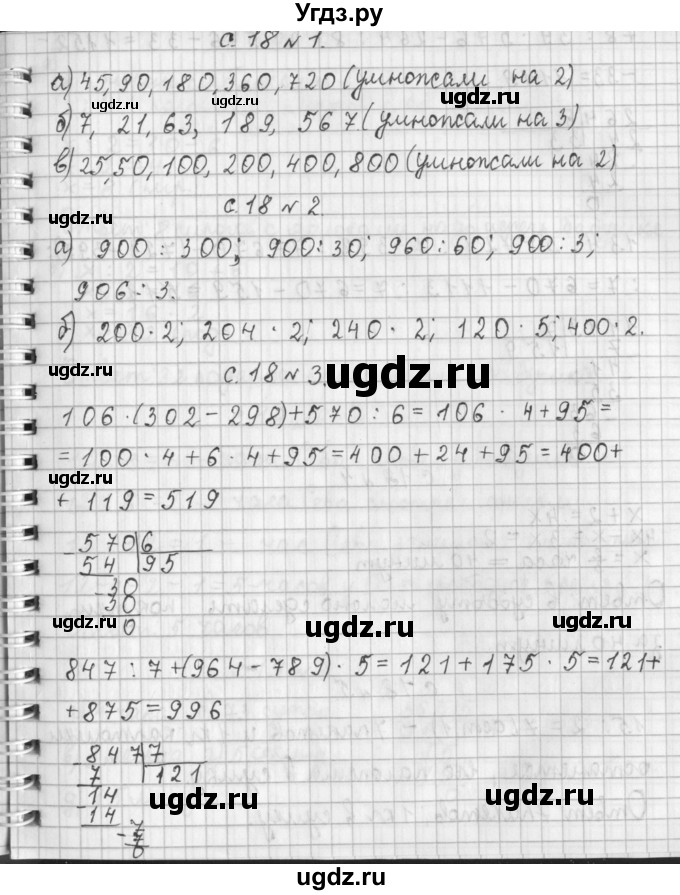 Угдз.ру
с. 18 № 1.
а) 45, 90, 180, 360, 720 (умножали на 2)
ugdz.ru ugdz.ru
б) 7, 21, 63, 189, 567 (умножали на 3)
в) 25, 50, 100, 200, 400, 800 (умножали на 2)
ugdz.ru с. 18 № 2. ugdz.ru
а) 900 : 300; 900 : 30; 960 : 60; 900 : 3;
906 : 3.
б) 200 · 2; 204 · 2; 240 · 2; 120 · 5; 400 · 2.
ugdz.ru с. 18 № 3. ugdz.ru
106 · (302 - 298) + 570 : 6 = 106 · 4 + 95 =
= 100 · 4 + 6 · 4 + 95 = 400 + 24 + 95 = 400 +
ugdz.ru ugdz.ru
+ 119 = 519
- 570 6
54 95
- 30
30
0
ugdz.ru ugdz.ru
847 : 7 + (964 - 789) · 5 = 121 + 175 · 5 = 121 +
+ 875 = 996
- 847 7
7 121
- 14
14
- 7
7
0
ugdz.ru ugdz.ru
ugdz.ru